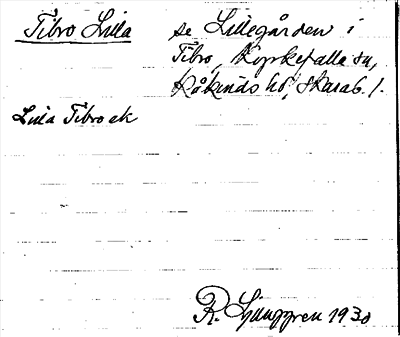 Tibro Lilla
se Lillegården i
Tibro, Kyrkefalla sn,
Kåkinds hd, Skarab. l.
Lilla Tibro ek
R. Ljunggren 1930